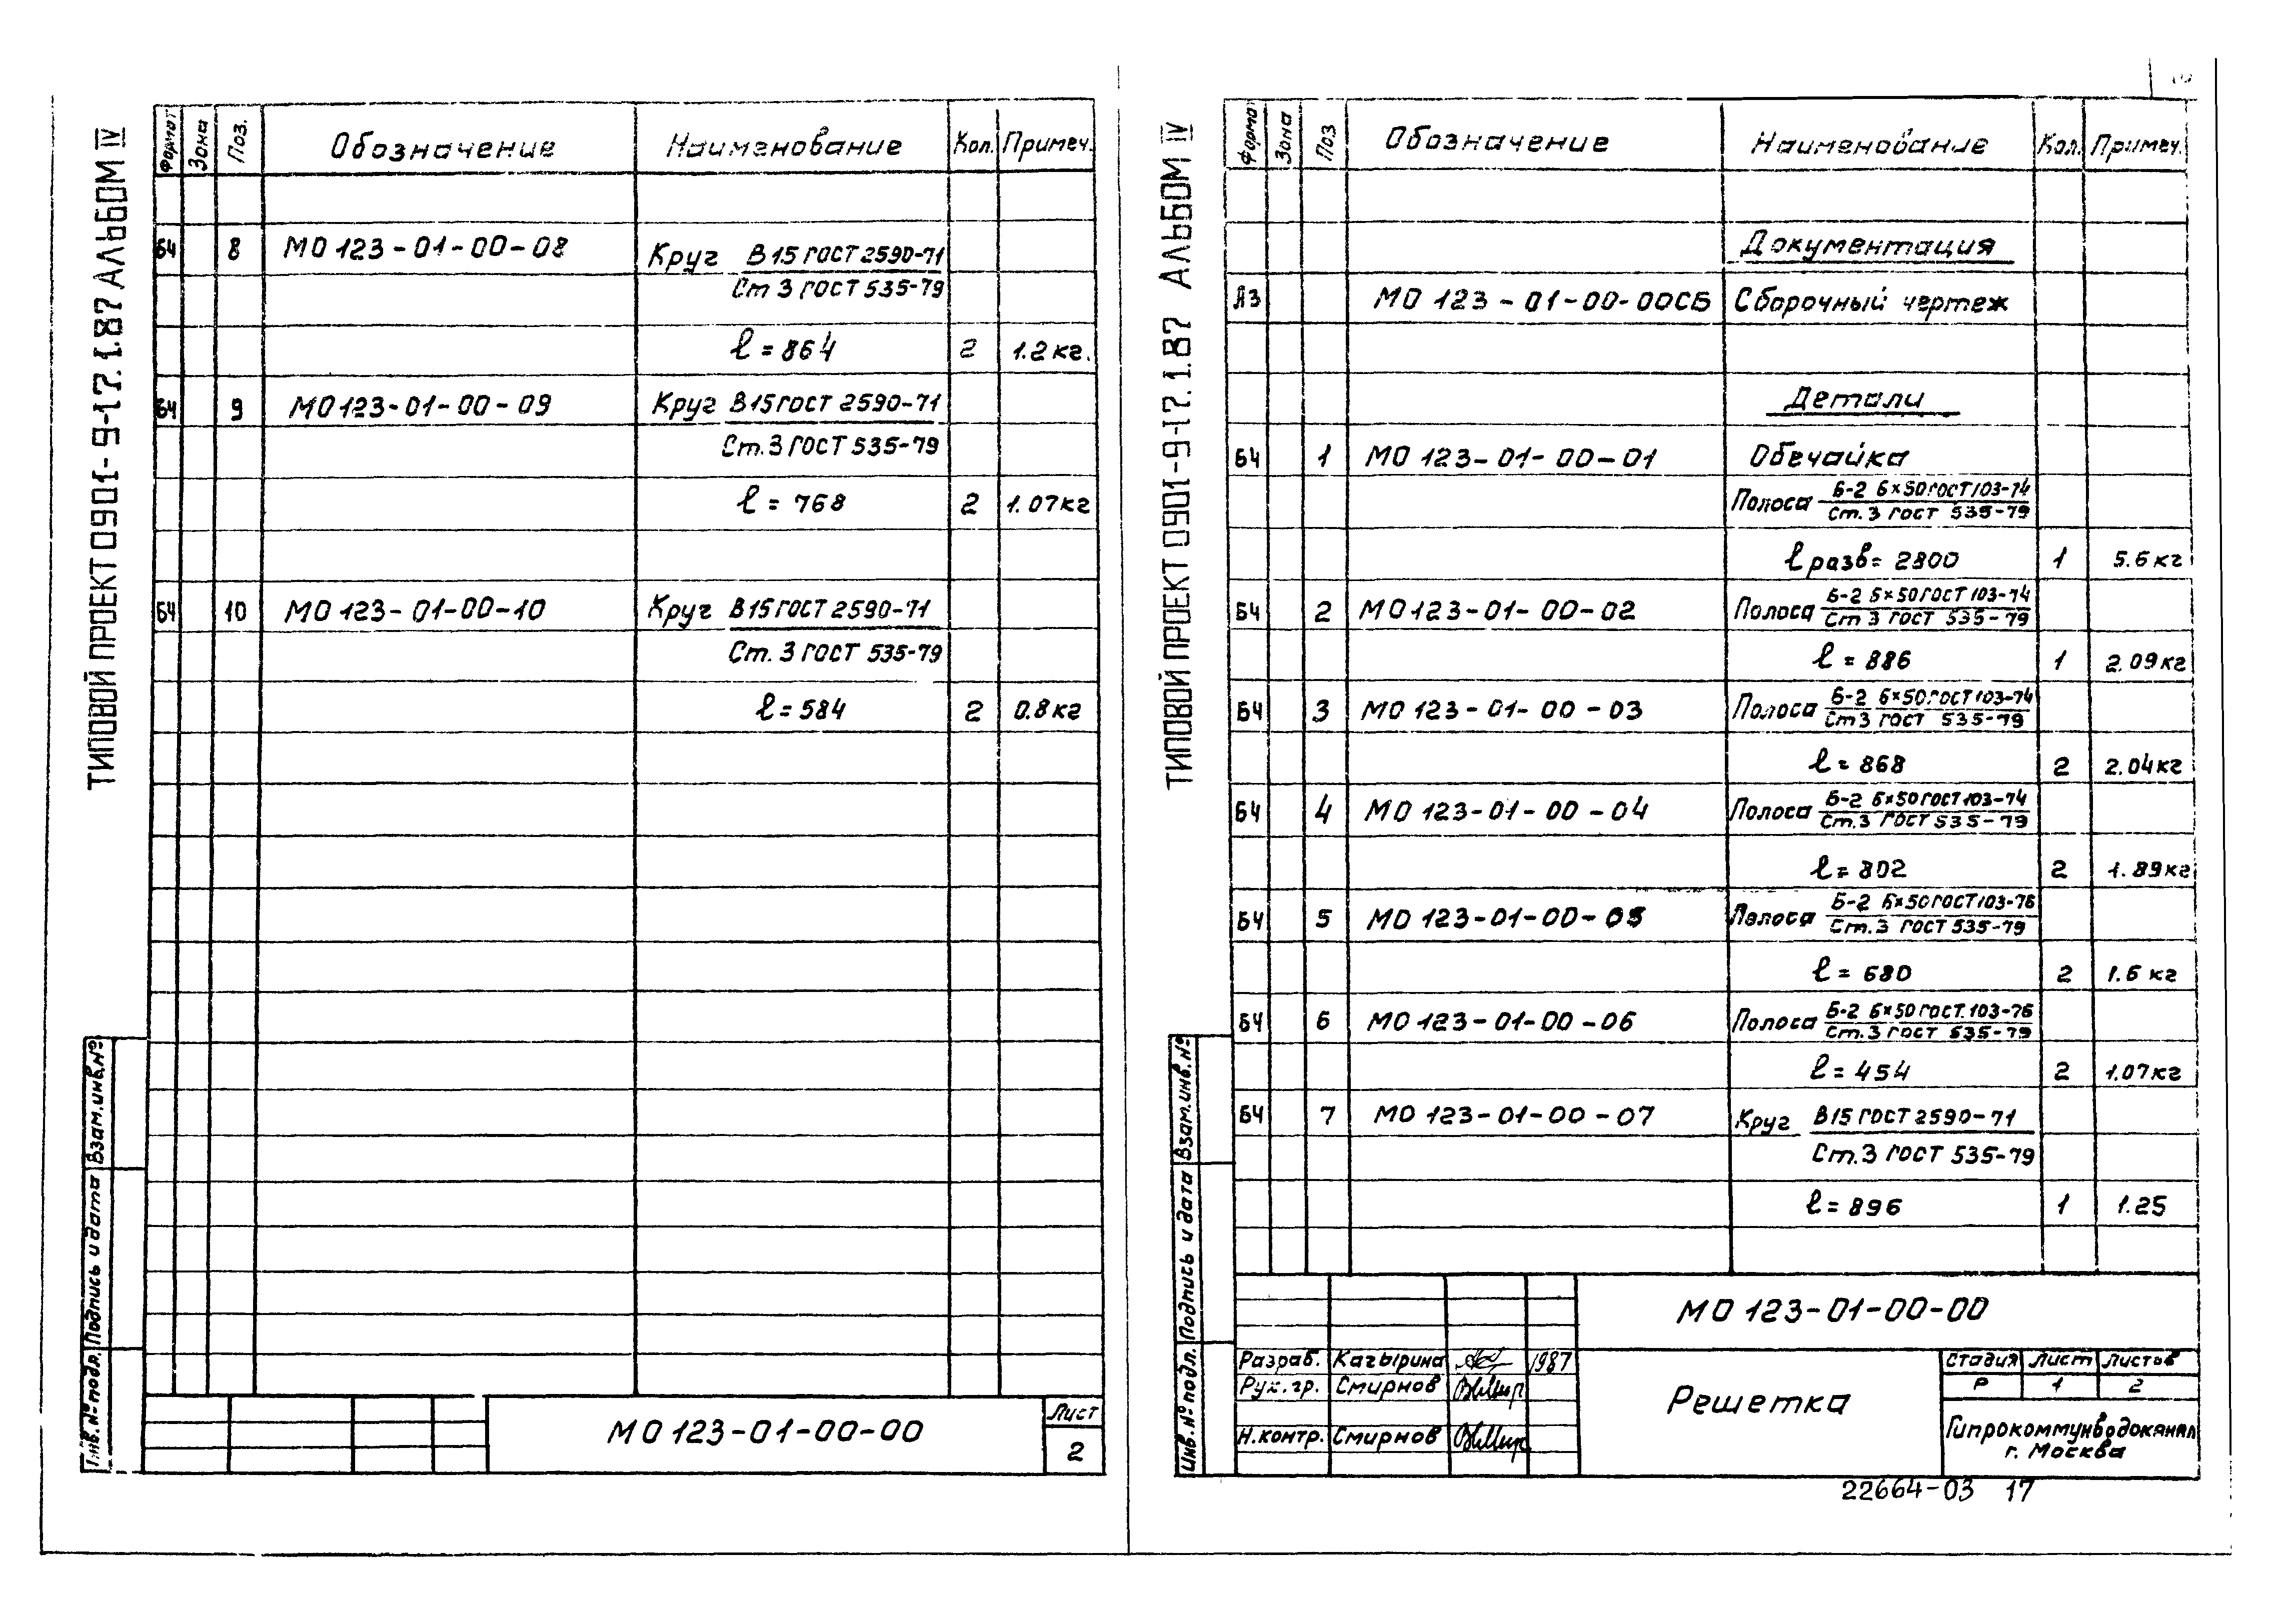 ТИПОВОЙ ПРОЕКТ 0901-9-17.1.87 АЛЬБОМ IV
Формат Зона Поз. Обозначение Наименование Кол. Примеч.
БЧ 8 МО 123-01-00-08 Круг В 15 ГОСТ 2590-71
Ст 3 ГОСТ 535-79
ℓ = 864 2 1.2 кг.
БЧ 9 МО 123-01-00-09 Круг В 15 ГОСТ 2590-71
Ст. 3 ГОСТ 535-79
ℓ = 768 2 1.07 кг
БЧ 10 МО 123-01-00-10 Круг В 15 ГОСТ 2590-71
Ст. 3 ГОСТ 535-79
ℓ = 584 2 0.8 кг
Инв. № подл. Подпись и дата Взам. инв. №
МО 123-01-00-00
Лист
2
ТИПОВОЙ ПРОЕКТ 0901-9-17.1.87 АЛЬБОМ IV
Форма Зона Поз Обозначение Наименование Кол. Примеч.
Документация
А3 МО 123-01-00-00СБ Сборочный чертеж
Детали
БЧ 1 МО 123-01-00-01 Обечайка
Полоса Б-2 6×50 ГОСТ 103-74
Ст. 3 ГОСТ 535-79
ℓ разв = 2800 1 5.6 кг
БЧ 2 МО 123-01-00-02 Полоса Б-2 6×50 ГОСТ 103-74
Ст 3 ГОСТ 535-79
ℓ = 886 1 2.09 кг
БЧ 3 МО 123-01-00-03 Полоса Б-2 6×50 ГОСТ 103-74
Ст 3 ГОСТ 535-79
ℓ = 868 2 2.04 кг
БЧ 4 МО 123-01-00-04 Полоса Б-2 6×50 ГОСТ 103-74
Ст. 3 ГОСТ 535-79
ℓ = 802 2 1.89 кг
БЧ 5 МО 123-01-00-05 Полоса Б-2 6×50 ГОСТ 103-76
Ст. 3 ГОСТ 535-79
ℓ = 680 2 1.6 кг
БЧ 6 МО 123-01-00-06 Полоса Б-2 6×50 ГОСТ 103-76
Ст. 3 ГОСТ 535-79
ℓ = 454 2 1.07 кг
БЧ 7 МО 123-01-00-07 Круг В 15 ГОСТ 2590-71
Ст. 3 ГОСТ 535-79
ℓ = 896 1 1.25
Инв. № подл. Подпись и дата Взам. инв. №
МО 123-01-00-00
Разраб. Качырина 1987
Рук. гр. Смирнов
Н. контр. Смирнов
Решетка
Стадия Лист Листов
Р 1 2
Гипрокоммунводоканал
г. Москва
22664-03 17